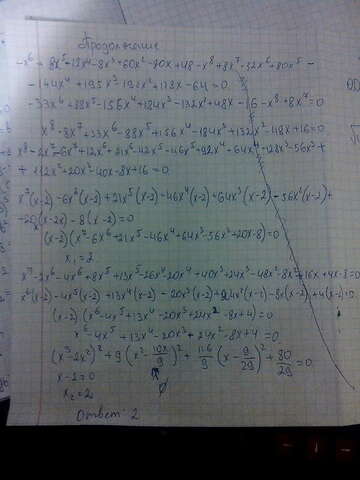 Продолжение
-x⁶ + 8x⁵ + 18x⁴ - 8x³ + 60x² - 80x + 48 - x⁸ + 8x⁷ - 32x⁶ + 80x⁵ -
- 144x⁴ + 192x³ - 192x² + 128x - 64 = 0
- 33x⁶ + 88x⁵ - 156x⁴ + 184x³ - 132x² + 48x - 16 - x⁸ + 8x⁷ = 0
x⁸ - 8x⁷ + 33x⁶ - 88x⁵ + 156x⁴ - 184x³ + 132x² - 48x + 16 = 0
x⁸ - 2x⁷ - 6x⁷ + 12x⁶ + 21x⁶ - 42x⁵ - 46x⁵ + 92x⁴ + 64x⁴ - 128x³ - 56x³ +
+ 112x² + 20x² - 40x - 8x + 16 = 0
x⁷(x-2) - 6x⁶(x-2) + 21x⁵(x-2) - 46x⁴(x-2) + 64x³(x-2) - 56x²(x-2) +
+ 20x(x-2) - 8(x-2) = 0
(x-2)(x⁷ - 6x⁶ + 21x⁵ - 46x⁴ + 64x³ - 56x² + 20x - 8) = 0
x₁ = 2
x⁷ - 2x⁶ - 4x⁶ + 8x⁵ + 13x⁵ - 26x⁴ - 20x⁴ + 40x³ + 24x³ - 48x² - 8x² + 16x + 4x - 8 = 0
x⁶(x-2) - 4x⁵(x-2) + 13x⁴(x-2) - 20x³(x-2) + 24x²(x-2) - 8x(x-2) + 4(x-2) = 0
(x-2)(x⁶ - 4x⁵ + 13x⁴ - 20x³ + 24x² - 8x + 4) = 0
x⁶ - 4x⁵ + 13x⁴ - 20x³ + 24x² - 8x + 4 = 0
(x³ - 2x²)² + 9(x² - 10x/9)² + 116/9 (x - 9/29)² + 80/29 = 0
x - 2 = 0
∅
x₂ = 2
Ответ: 2